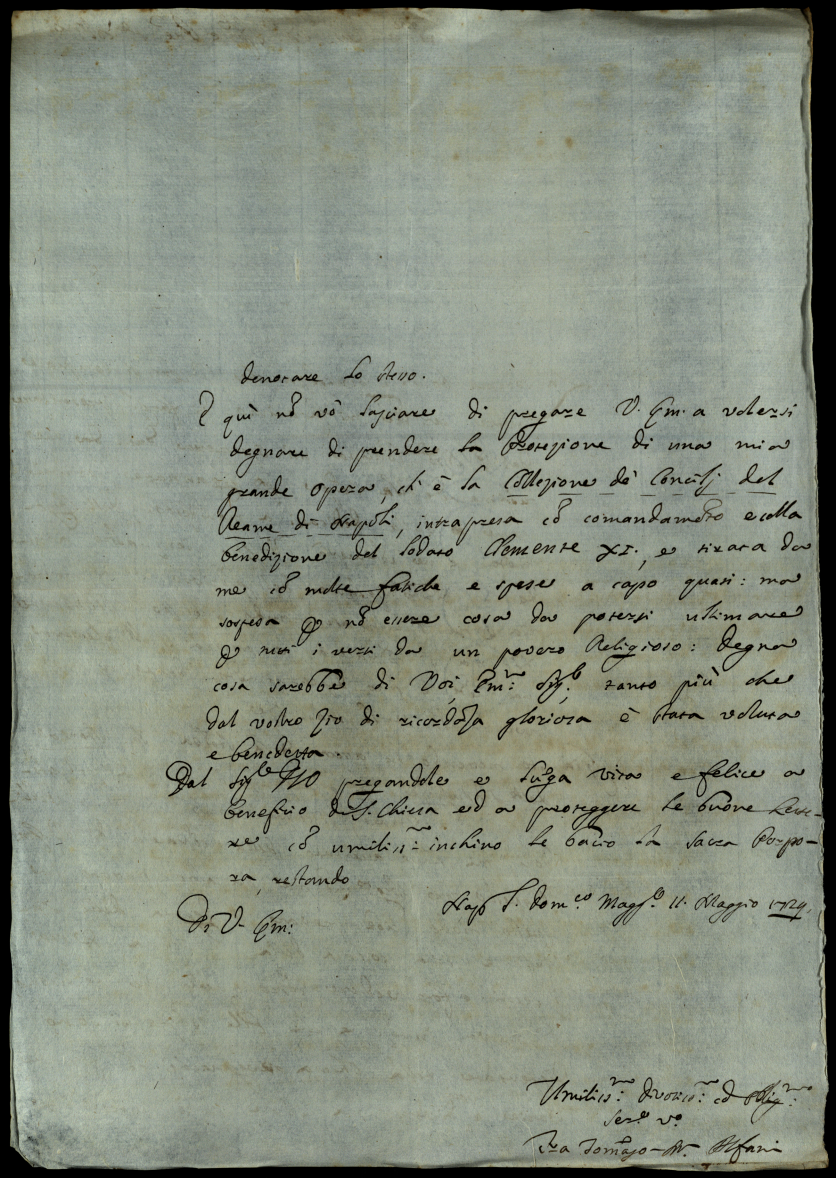 denotare lo stesso.
E quì nõ vò lasciare di pregare V. Em. a volersi
degnare di prendere la Protezione di una mia
grande opera, ch'è la Collezione de' Concilj del
Reame di Napoli, intrapresa cõ comandam̃to e colla
benedizione del lodato Clemente XI. e tirata da
me cõ molte fatiche e spese a capo quasi: ma
sospesa p nõ essere cosa da potersi ultimare
p tutti i versi da un povero Religioso: Degna
cosa sarebbe di Voi, Em.mo Sig.e, tanto più che
dal vostro Zio di ricordãza gloriosa è stata voluta
e benedetta.
Dal Sig.e pregandole e luga vita e felice a
beneficio di S. Chiesa ed a proteggere le buone Lette-
re cõ umiliss.mo inchino le bacio la sacra Porpo-
ra, restando
Nap. S. Dom.co Magg.e 11. Maggio 1729.
Di V. Em:
Umiliss.mo divotiss.mo ed Oblig.mo
Ser.e v.o
Fra Tomaso M. Alfani